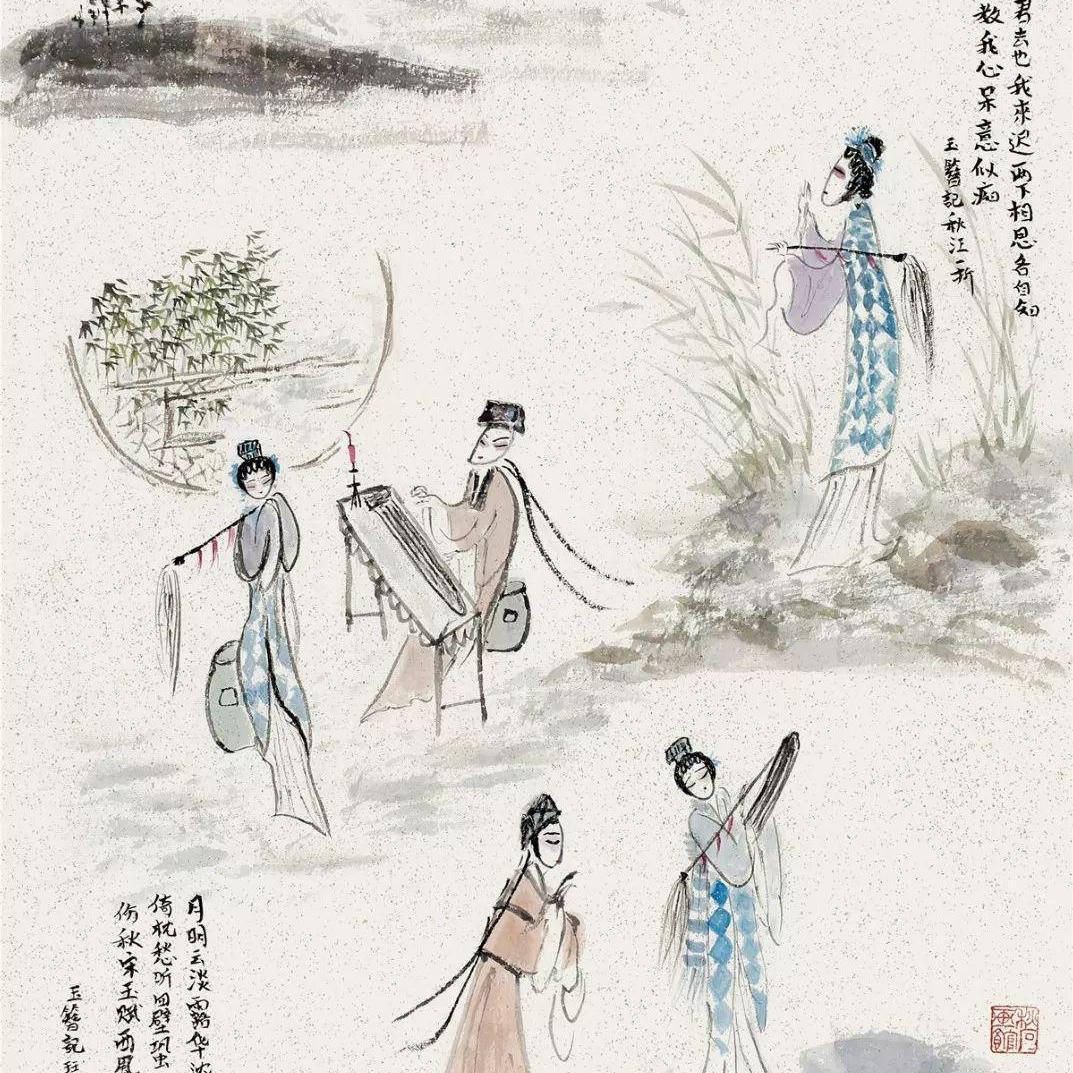 君去也我來迟两下相思各自知
教我心呆意似痴
玉簪記秋江一折
月明云淡露华浓
倚枕愁听四壁蛩
伤秋宋玉赋西風
玉簪記